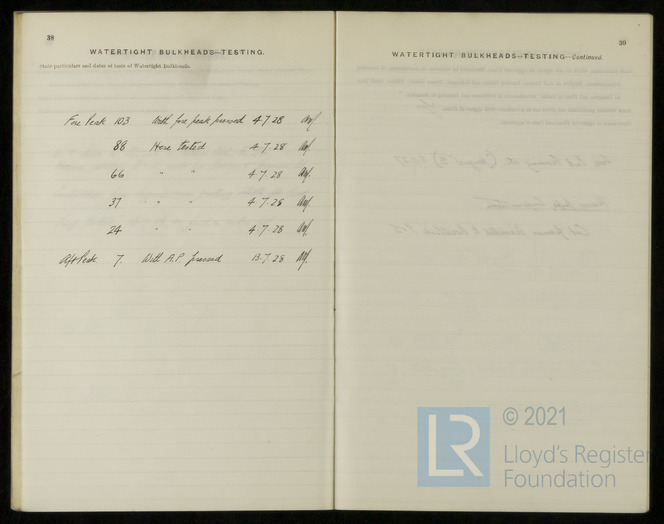 38
WATERTIGHT BULKHEADS—TESTING.
State particulars and dates of tests of Watertight Bulkheads.
Fore Peak 103 With fore peak pressed 4 7 28
88 Hose tested 4 7 28
66 " " 4 7 28
37 " " 4 7 28
24 " " 4 7 28
Aft Peak 7. With A.P pressed 13 7 28
39
WATERTIGHT BULKHEADS—TESTING—Continued.
LR
© 2021
Lloyd's Register
Foundation